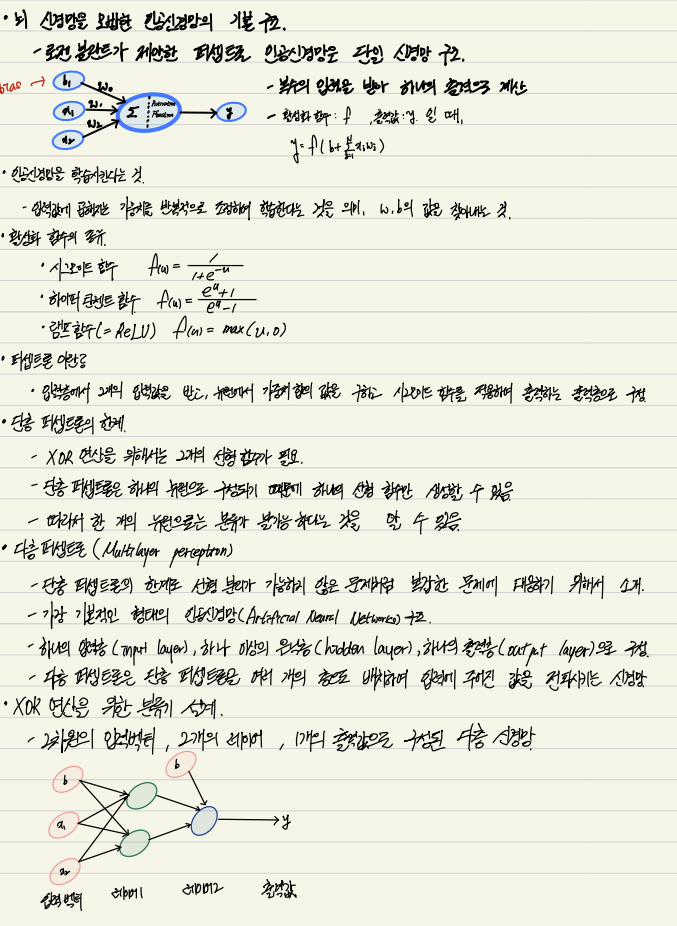 • 뇌 신경망을 모방한 인공신경망의 기본 구조.
- 로젠 블란트가 제안한 퍼셉트론 인공신경망은 단일 신경망 구조.
bias → b₁ w₀
x₁ w₁ Σ Activation Function y
x₂ w₂
- 복수의 입력을 받아 하나의 출력으로 계산
- 활성화 함수: f , 출력값: y 일 때,
y = f(b + Σ xᵢwᵢ)
• 인공신경망을 학습시킨다는 것
- 입력값에 곱해지는 가중치를 반복적으로 조정하며 학습한다는 것을 의미, w, b의 값을 찾아내는 것.
• 활성화 함수의 종류.
• 시그모이드 함수 f(u) = 1 / 1+e^-u
• 하이퍼 탄젠트 함수 f(u) = e^u+1 / e^u-1
• 램프 함수(=ReLU) f(u) = max(u, 0)
• 퍼셉트론 이란?
• 입력층에서 2개의 입력값을 받고, 뉴런에서 가중치 합의 값을 구하고 시그모이드 함수를 적용하여 출력하는 출력층으로 구성
• 단층 퍼셉트론의 한계.
- XOR 연산을 위해서는 2개의 선형 함수가 필요.
- 단층 퍼셉트론은 하나의 뉴런으로 구성되기 때문에 하나의 선형 함수만 생성할 수 있음
- 따라서 한 개의 뉴런으로는 분류가 불가능 하다는 것을 알 수 있음.
• 다층 퍼셉트론 (Multilayer perceptron)
- 단층 퍼셉트론의 한계로 선형 분리가 가능하지 않은 문제처럼 복잡한 문제에 대응하기 위해서 소개.
- 가장 기본적인 형태의 인공신경망(Artificial Neural Networks) 구조.
- 하나의 입력층(input layer), 하나 이상의 은닉층(hidden layer), 하나의 출력층(output layer)으로 구성.
- 다층 퍼셉트론은 단층 퍼셉트론을 여러 개의 층으로 배치하여 입력에 주어진 값을 전파시키는 신경망
• XOR 연산을 위한 분류기 설계.
- 2차원의 입력벡터, 2개의 레이어, 1개의 출력값으로 구성된 다층 신경망.
b b
x₁ y
x₂
입력벡터 레이어1 레이어2 출력값